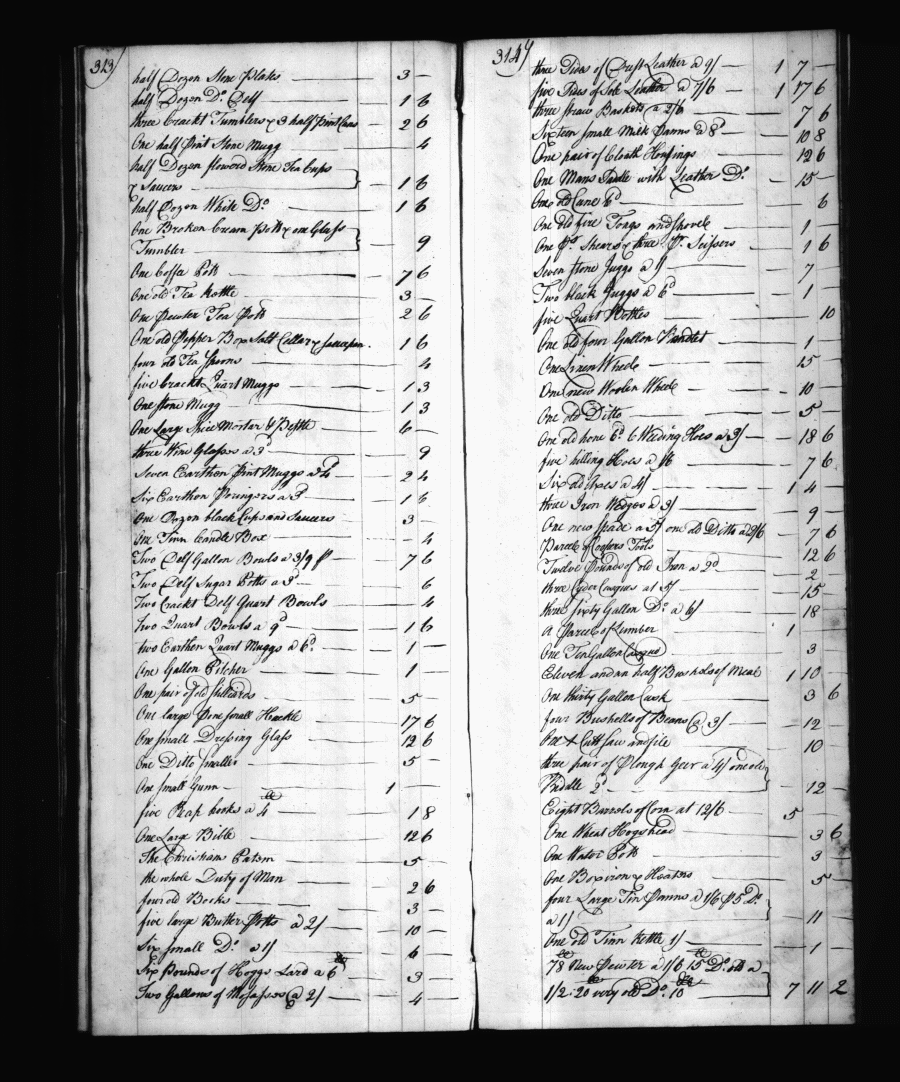 313
half Dozen Stone Plates 3 —
half Dozen Do. Delf 1 6
three Crackt Tumblers & 3 half pint Cans 2 6
One half Pint Stone Mugg 4
half Dozen flowerd Stone Tea Cups
& Saucers 1 6
half Dozen White Do. 1 6
One Broken Cream Pott & one Glass
Tumbler 9
One Coffee Pott 7 6
One old Tea Kettle 3 —
One Pewter Tea Pott 2 6
One old Pepper Box Salt Cellar & Saucepan 1 6
four old Tea Spoons 4
five Crackt Quart Muggs 1 3
One stone Mugg 1 3
One Large Spice Mortar & Pestle 6 —
three Wine Glasses a 3d 9
Seven Earthen Pint Muggs a 4 2 4
Six Earthen Poringers a 3d 1 6
One Dozen black Cups and Saucers 3 —
One Tinn Candle Box 4
Two Delf Gallon Bowls a 3/9 p 7 6
Two Delf Sugar Potts a 3d 6
Two Crackt Delf Quart Bowls 4
Two Quart Bowls a 9d 1 6
two Earthen Quart Muggs a 6d 1 —
One Gallon Pitcher 1 —
One pair of old 5
One large One small Hackle 17 6
One small Dressing Glass 12 6
One Ditto Smaller 5 —
One Small Gunn 1
five Reap hooks a 4d 1 8
One Large Bible 12 6
The Christians Patern 5 —
the whole Duty of Man 2 6
four old Books 3 —
five large Butter Potts a 2/ 10 —
Six small Do. a 1/ 6 —
Six Pounds of Hoggs Lard a 6d 3 —
Two Gallons of Molasses @ 2/ 4 —
314
three Sides of Leather a 9/ 1 7 —
five Sides of Sole Leather a 7/6 1 17 6
three straw Baskets a 2/6 7 6
Sixteen small Milk Panns a 8d 10 8
One pair of Cloath Housings 12 6
One Mans Saddle with Leather Do. 15 —
One old Cane 6d 6
One old fire Tongs and shovele 1 —
One Pr. Shears & three Pr. Scissers 1 6
Seven Stone Juggs a 1/ 7 —
Two black Juggs a 6d 1 —
five Quart Bottles 10
One old four Gallon Rundlet 1 —
One Linen Wheele 15 —
One new Woolen Wheele 10 —
One old Ditto 5 —
One old hone 6d 6 Weeding Hoes a 3/ 18 6
five hilling Hoes a 1/6 7 6
Six old Axes a 4/ 1 4 —
three Iron Wedges a 3/ 9 —
One new Spade a 5/ one old Ditto a 2/6 7 6
Parcele of Coopers Tools 12 6
Twelve Pounds of old Iron a 2d 2 —
three Cyder Casques at 5/ 15 —
three Sixty Gallon Do. a 6/ 18 —
A Parcel of Lumber 1 —
One Ten Gallon Casque 3
Eleven and an half Bushels of Meal 1 10
One thirty Gallon Cask 3 6
four Bushells of Beans @ 3/ 12 —
One X Cutt Saw and file 10 —
three pair of Plough Geer a 4/ one old
Riddle 2d 12 —
Eight Barrels of Corn at 12/6 5
One Wheat Hogshead 3 6
One Water Pott 3 —
One Box iron & Heaters 5 —
four Large Tin Panns a 1/6 & 5 Do.
a 1/ 11 —
One old Tinn Kettle 1/ 1 —
78 New Pewter a 1/6 15 Do. old a
1/2 : 20 very old Do. 10 7 11 2